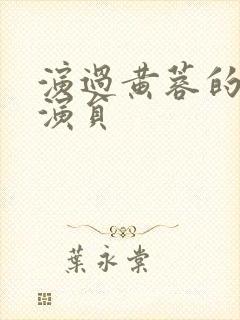 演過黃蓉的
演員
葉永棠